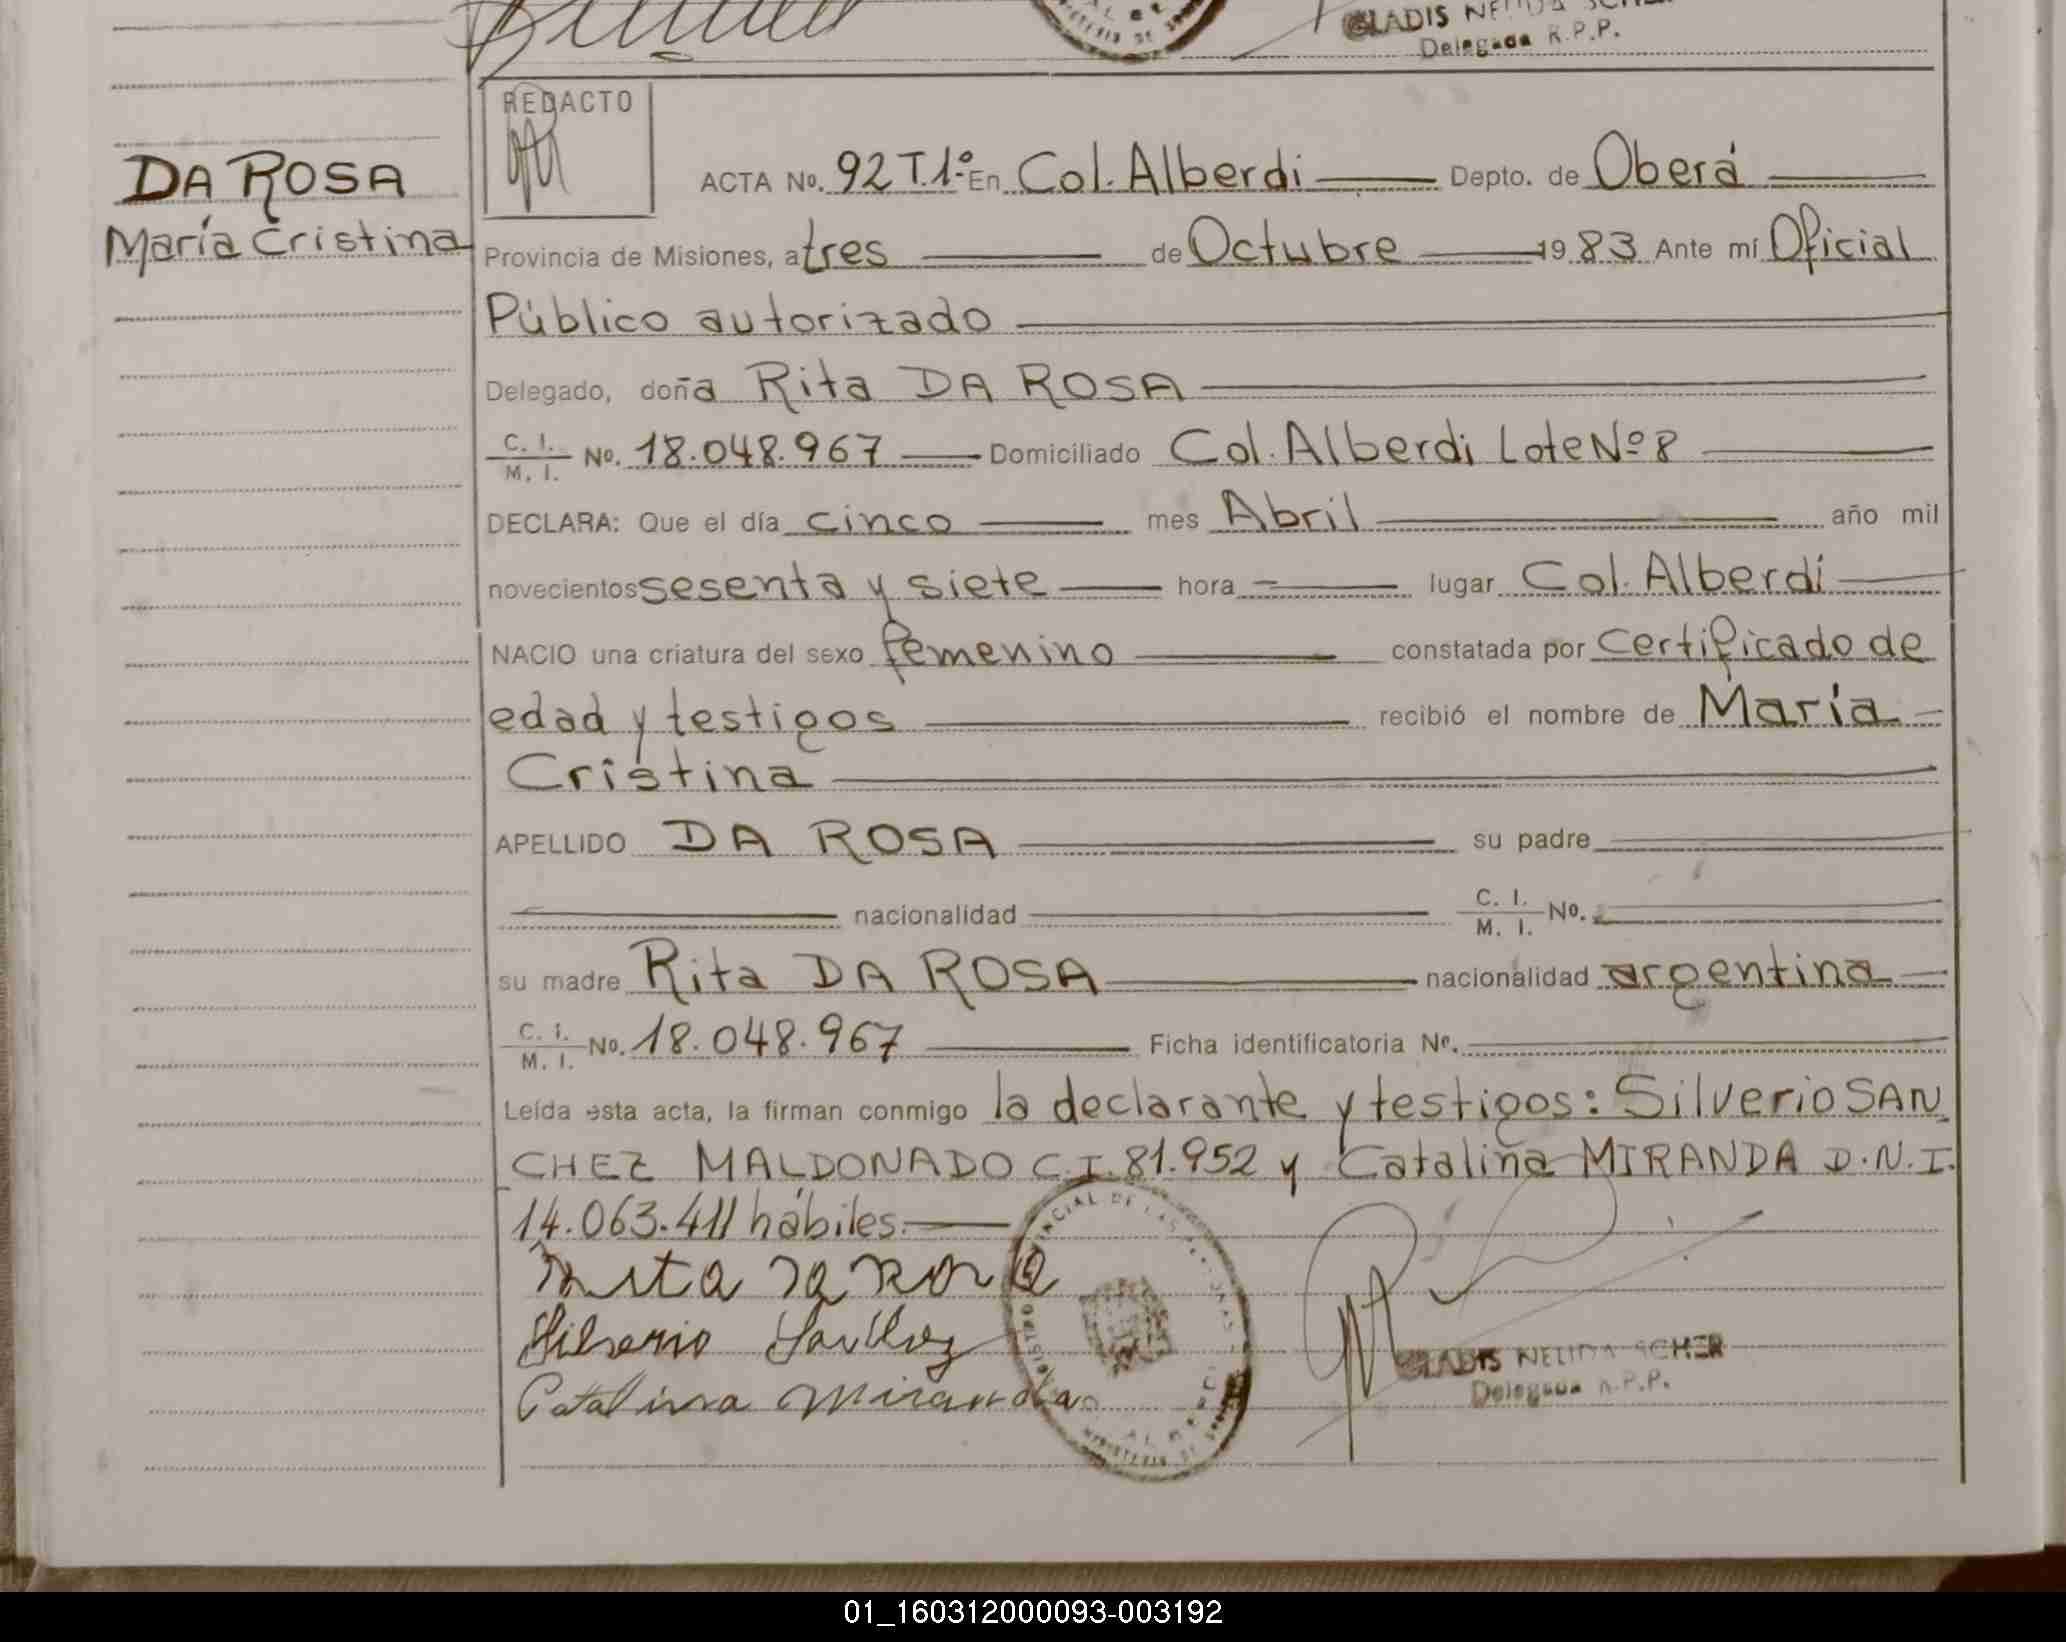 GLADIS NELIDA SCHER
Delegada R.P.P.
REDACTO
DA ROSA
María Cristina
ACTA No. 92 T.1º En Col. Alberdi Depto. de Oberá
Provincia de Misiones, a tres de Octubre 1983 Ante mí Oficial
Público autorizado
Delegado, doña Rita DA ROSA
C. I. M. I. No. 18.048.967 Domiciliado Col. Alberdi Lote Nº 8
DECLARA: Que el día cinco mes Abril año mil
novecientos sesenta y siete hora lugar Col. Alberdi
NACIO una criatura del sexo femenino constatada por certificado de
edad y testigos recibió el nombre de María
Cristina
APELLIDO DA ROSA su padre
nacionalidad C. I. M. I. No.
su madre Rita DA ROSA nacionalidad argentina
C. I. M. I. No. 18.048.967 Ficha identificatoria Nº.
Leída esta acta, la firman conmigo la declarante y testigos: Silverio SAN
CHEZ MALDONADO C.I. 81.952 y Catalina MIRANDA D.N.I.
14.063.411 hábiles.
Rita da Rosa
Silverio Sanchez
Catalina Miranda
GLADIS NELIDA SCHER
Delegada R.P.P.
01_160312000093-003192